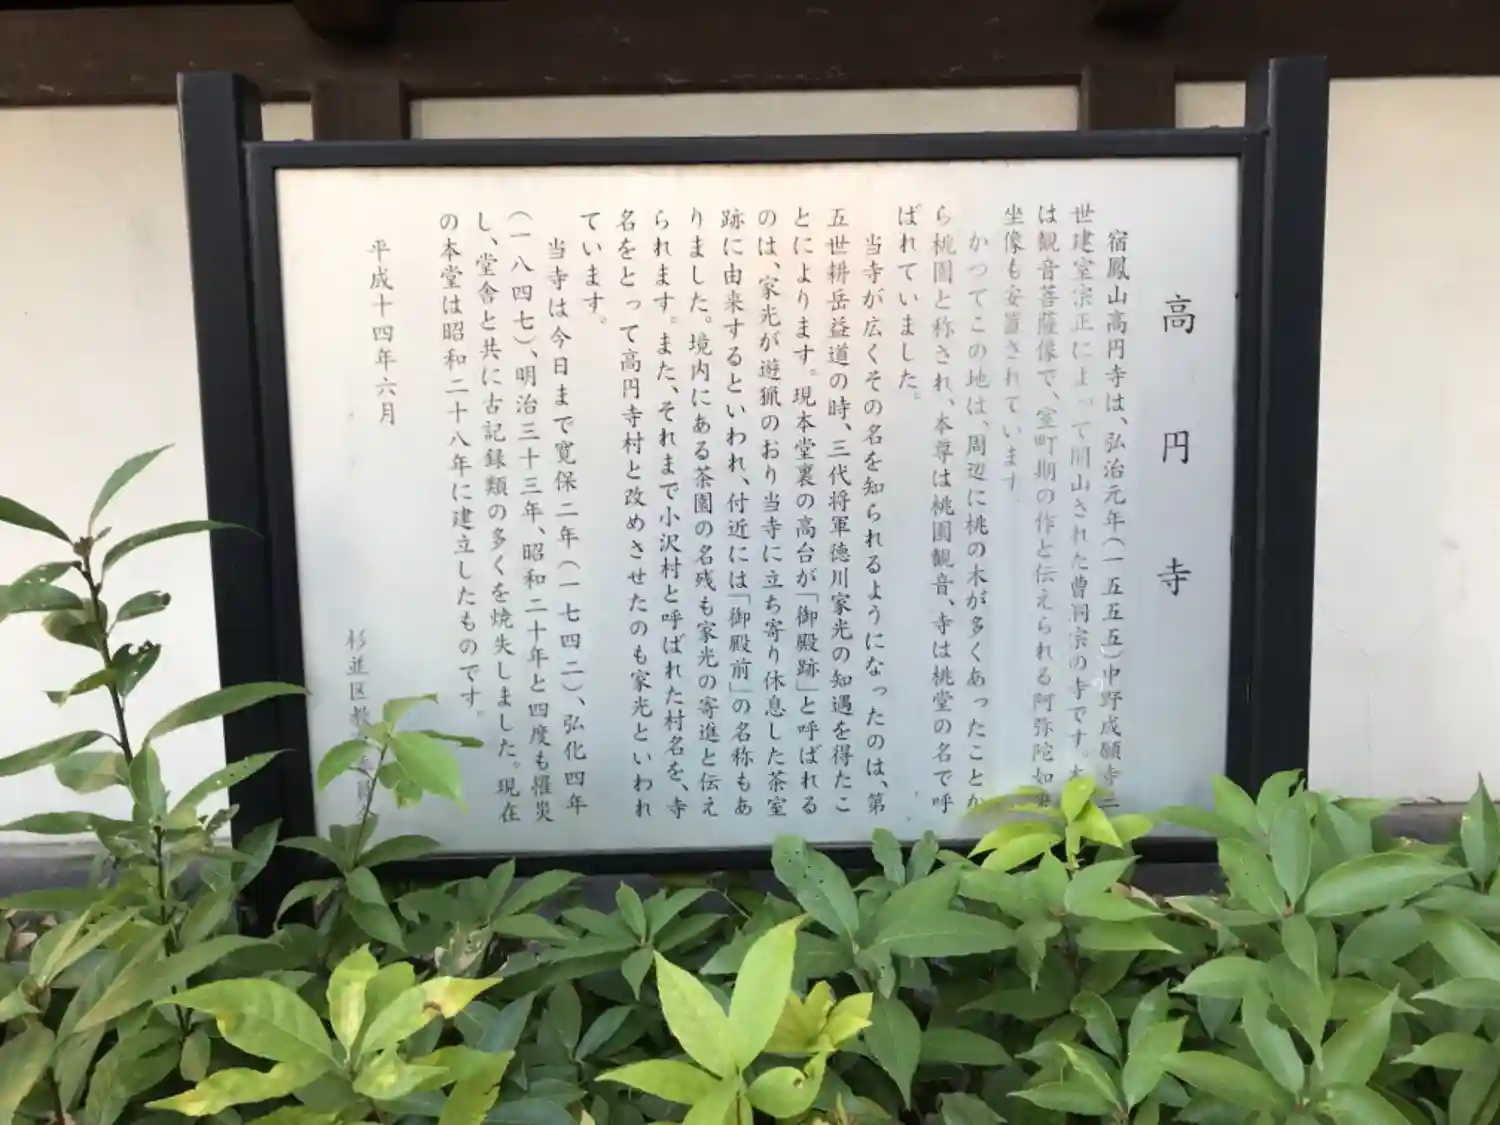 高円寺
宿鳳山高円寺は、弘治元年(一五五五)中野成願寺三
世建室宗正によって開山された曹洞宗の寺です。本
は観音菩薩像で、室町期の作と伝えられる阿弥陀如来
坐像も安置されています
かつてこの地は、周辺に桃の木が多くあったことか
ら桃園と称され、本尊は桃園観音、寺は桃堂の名で呼
ばれていました。
当寺が広くその名を知られるようになったのは、第
五世耕岳益道の時、三代将軍徳川家光の知遇を得たこ
とによります。現本堂裏の高台が「御殿跡」と呼ばれる
のは、家光が遊猟のおり当寺に立ち寄り休息した茶室
跡に由来するといわれ、付近には「御殿前」の名称もあ
りました。境内にある茶園の名残も家光の寄進と伝え
られます。また、それまで小沢村と呼ばれた村名を、寺
名をとって高円寺村と改めさせたのも家光といわれ
ています。
当寺は今日まで寛保二年(一七四二)、弘化四年
(一八四七)、明治三十三年、昭和二十年と四度も罹災
し、堂舎と共に古記録類の多くを焼失しました。現在
の本堂は昭和二十八年に建立したものです。
平成十四年六月
杉並区教 委員会